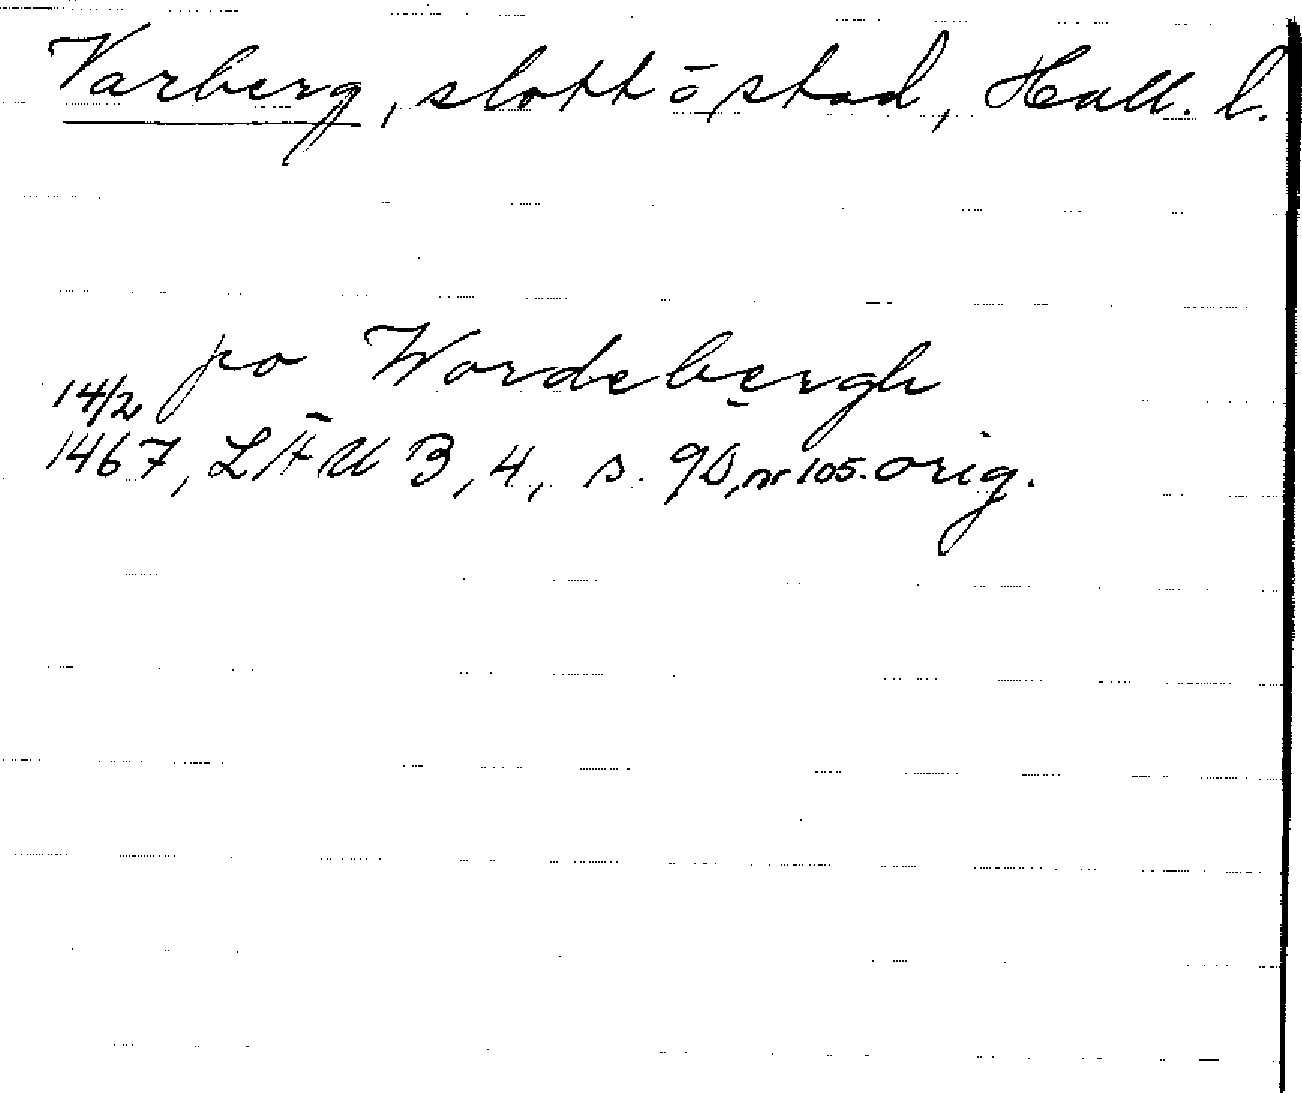 Varberg, slott ō stad, Hall. l.
po Wordebergh
14/2
1467, LÄU B, 4, s. 90, nr 105. orig.